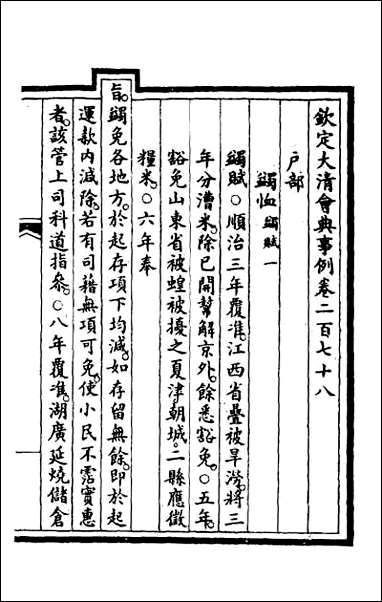 欽定大清會典事例卷二百七十八
戶部
蠲恤 蠲賦一
蠲賦○順治三年覆准江西省疊被旱澇將三
年分漕米除已開幫解京外餘悉豁免○五年
豁免山東省被蝗被擾之夏津朝城二縣應徵
糧米○六年奉
旨蠲免各地方於起存項下均減如存留無餘即於起
運款內減除若有司藉無項可免使小民不霑實惠
者該管上司科道指參○八年覆准湖廣延燒儲倉